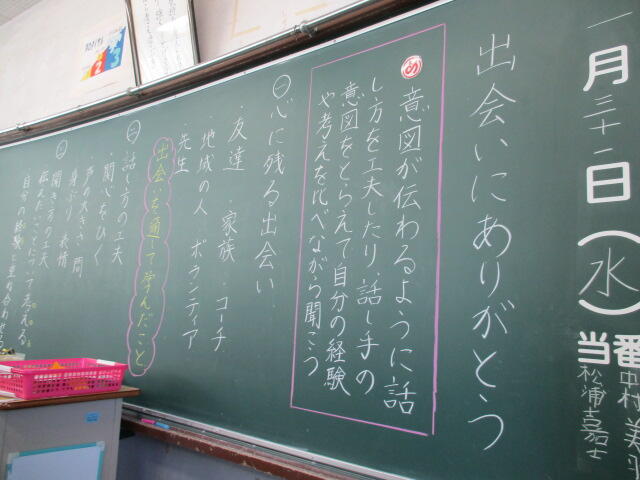 一月三十一日(水)
当番
中村美
松浦吉
出会いにありがとう
め
意図が伝わるように話
し方を工夫したり、話し手の
意図をとらえて自分の経験
や考えを比べながら聞こう
㊀心に残る出会い
・友達・家族・コーチ
・地域の人・ボランティア
・先生
出会いを通して学んだこと
㊁話し方の工夫
・関心をひく
・声の大きさ・間
・身ぶり・表情
聞き方の工夫
・伝えたいことについて考える。
・自分の経験と重ね合わせる